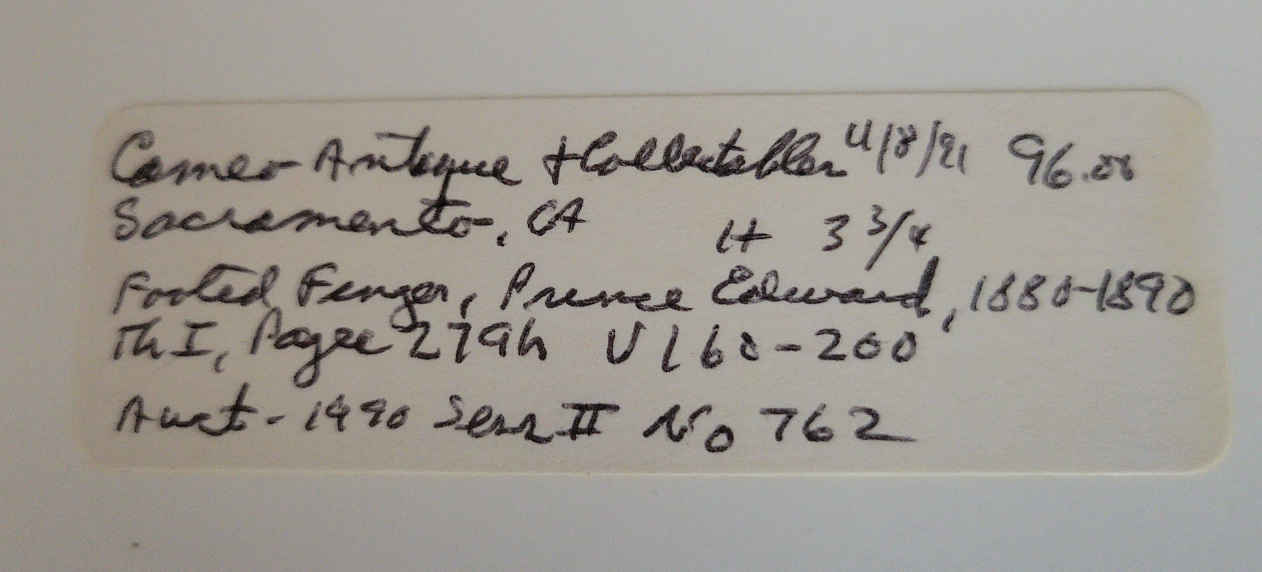 Cameo Antique + Collectables 4/8/91 96.00
Sacramento, CA H 3 3/4
Footed Finger, Prince Edward, 1880-1890
Th I, Page 279h V 160-200
Auct-1990 Sess II No 762